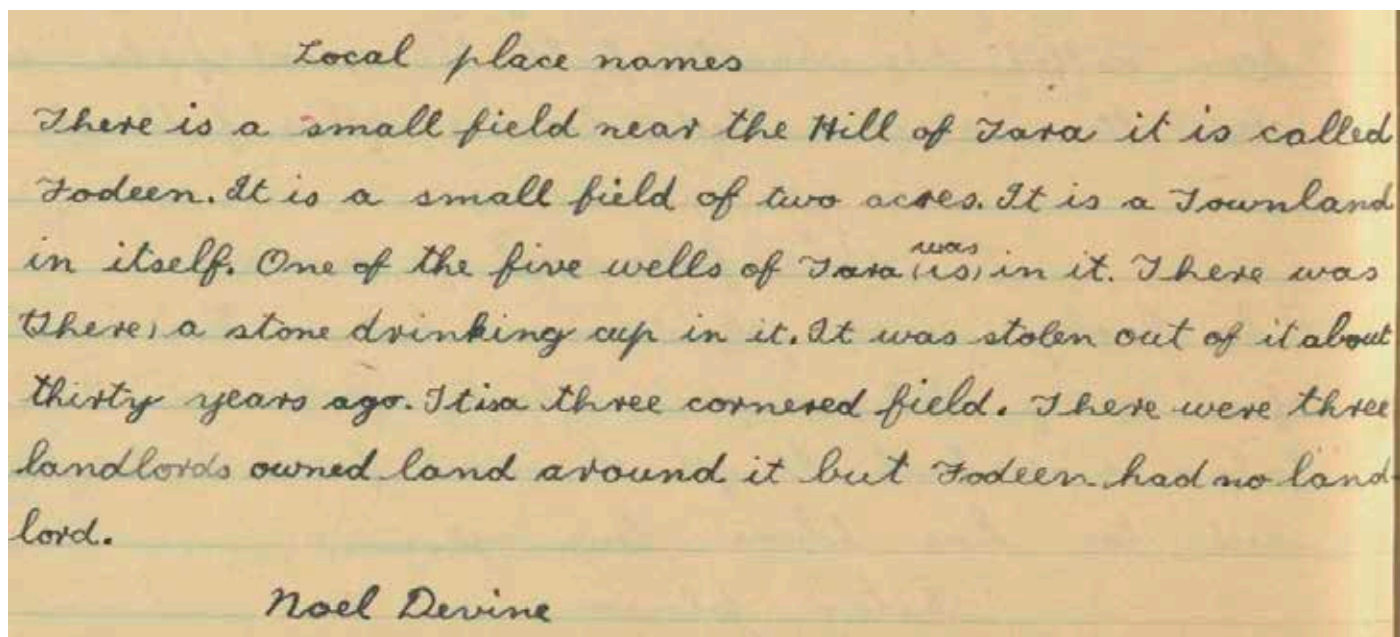 Local place names
There is a small field near the Hill of Tara it is called
Fodeen. It is a small field of two acres. It is a Townland
in itself. One of the five wells of Tara (is) was in it. There was
(there) a stone drinking cup in it. It was stolen out of it about
thirty years ago. It is a three cornered field. There were three
landlords owned land around it but Fodeen had no land-
lord.
Noel Devine